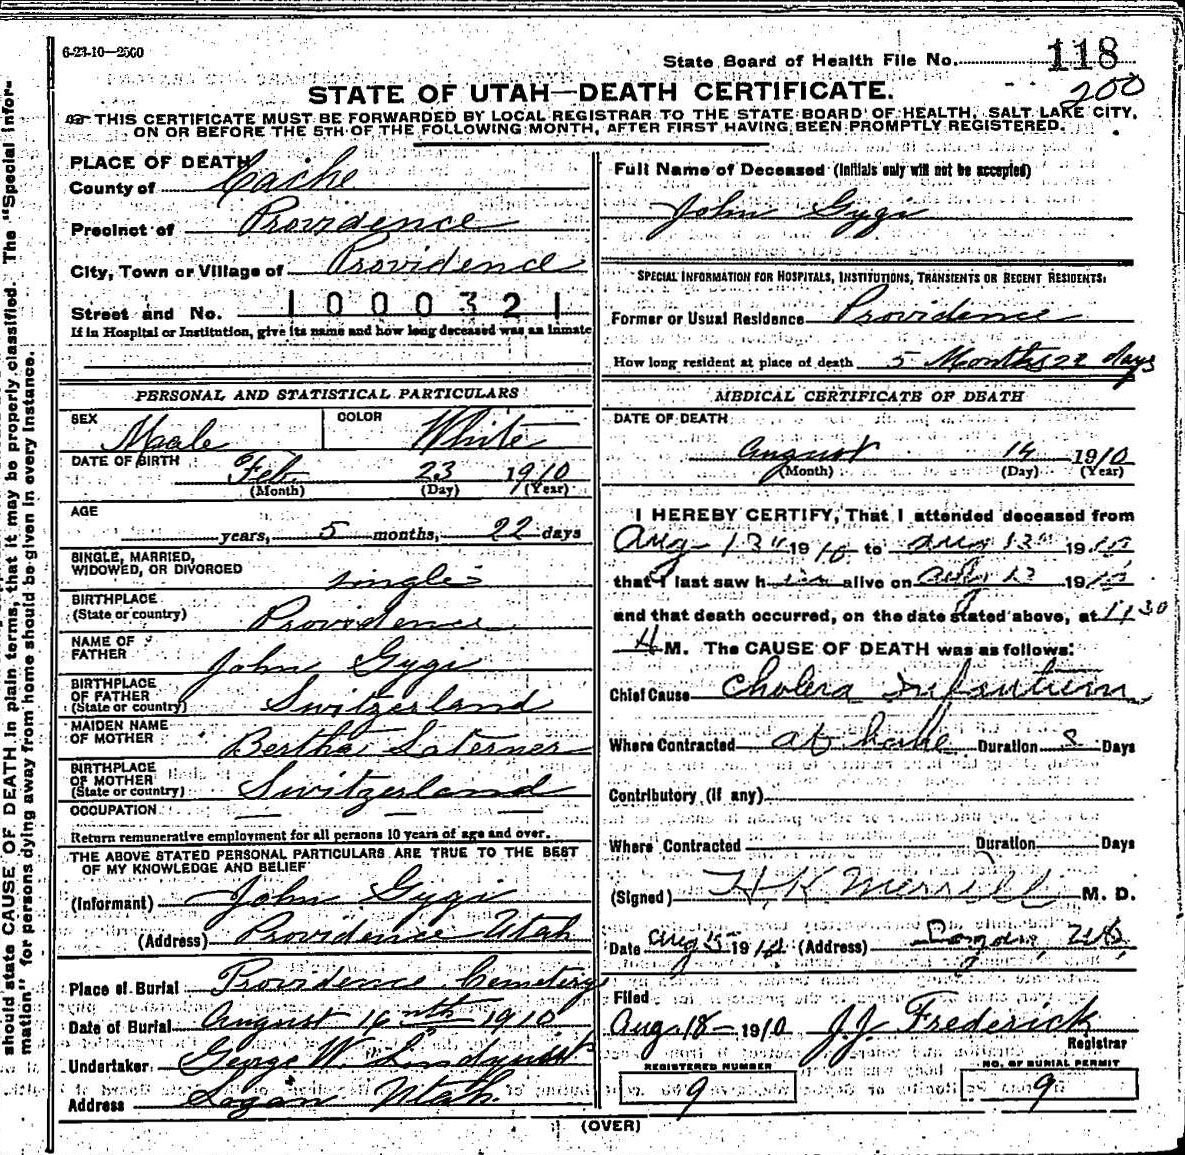 6-23-10—2500
State Board of Health File No. 118
200
STATE OF UTAH—DEATH CERTIFICATE.
THIS CERTIFICATE MUST BE FORWARDED BY LOCAL REGISTRAR TO THE STATE BOARD OF HEALTH, SALT LAKE CITY,
ON OR BEFORE THE 5TH OF THE FOLLOWING MONTH, AFTER FIRST HAVING BEEN PROMPTLY REGISTERED.
PLACE OF DEATH
County of Cache
Precinct of Providence
City, Town or Village of Providence
Street and No. 1000321
If in Hospital or Institution, give its name and how long deceased was an inmate
PERSONAL AND STATISTICAL PARTICULARS
SEX Male COLOR White
DATE OF BIRTH Feb. 23 1910
(Month) (Day) (Year)
AGE
years, 5 months, 22 days
SINGLE, MARRIED,
WIDOWED, OR DIVORCED single
BIRTHPLACE
(State or country) Providence
NAME OF
FATHER John Gygi
BIRTHPLACE
OF FATHER
(State or country) Switzerland
MAIDEN NAME
OF MOTHER Bertha Laterner
BIRTHPLACE
OF MOTHER
(State or country) Switzerland
OCCUPATION — — —
Return remunerative employment for all persons 10 years of age and over.
THE ABOVE STATED PERSONAL PARTICULARS ARE TRUE TO THE BEST
OF MY KNOWLEDGE AND BELIEF
(Informant) John Gygi
(Address) Providence Utah
Place of Burial Providence Cemetery
Date of Burial August 16 1910
Undertaker George W. Lindquist
Address Logan Utah.
Full Name of Deceased (Initials only will not be accepted)
John Gygi
SPECIAL INFORMATION FOR HOSPITALS, INSTITUTIONS, TRANSIENTS OR RECENT RESIDENTS:
Former or Usual Residence Providence
How long resident at place of death 5 Months 22 days
MEDICAL CERTIFICATE OF DEATH
DATE OF DEATH
August 14 1910
(Month) (Day) (Year)
I HEREBY CERTIFY, That I attended deceased from
Aug 13" 1910 to Aug 13" 1910
that I last saw him alive on Aug 13 1910
and that death occurred, on the date stated above, at 11 30
M. The CAUSE OF DEATH was as follows:
Chief Cause Cholera Infantum
Where Contracted at home Duration 8 Days
Contributory (if any)
Where Contracted Duration Days
(Signed) H. K. Merrill M. D.
Date Aug 15 1910 (Address) Logan, Utah
Filed
Aug 18 1910 J. J. Frederick
Registrar
REGISTERED NUMBER
9
NO. OF BURIAL PERMIT
9
(OVER)
should state CAUSE OF DEATH in plain terms, that it may be properly classified. The "Special Infor-
mation" for persons dying away from home should be given in every instance.